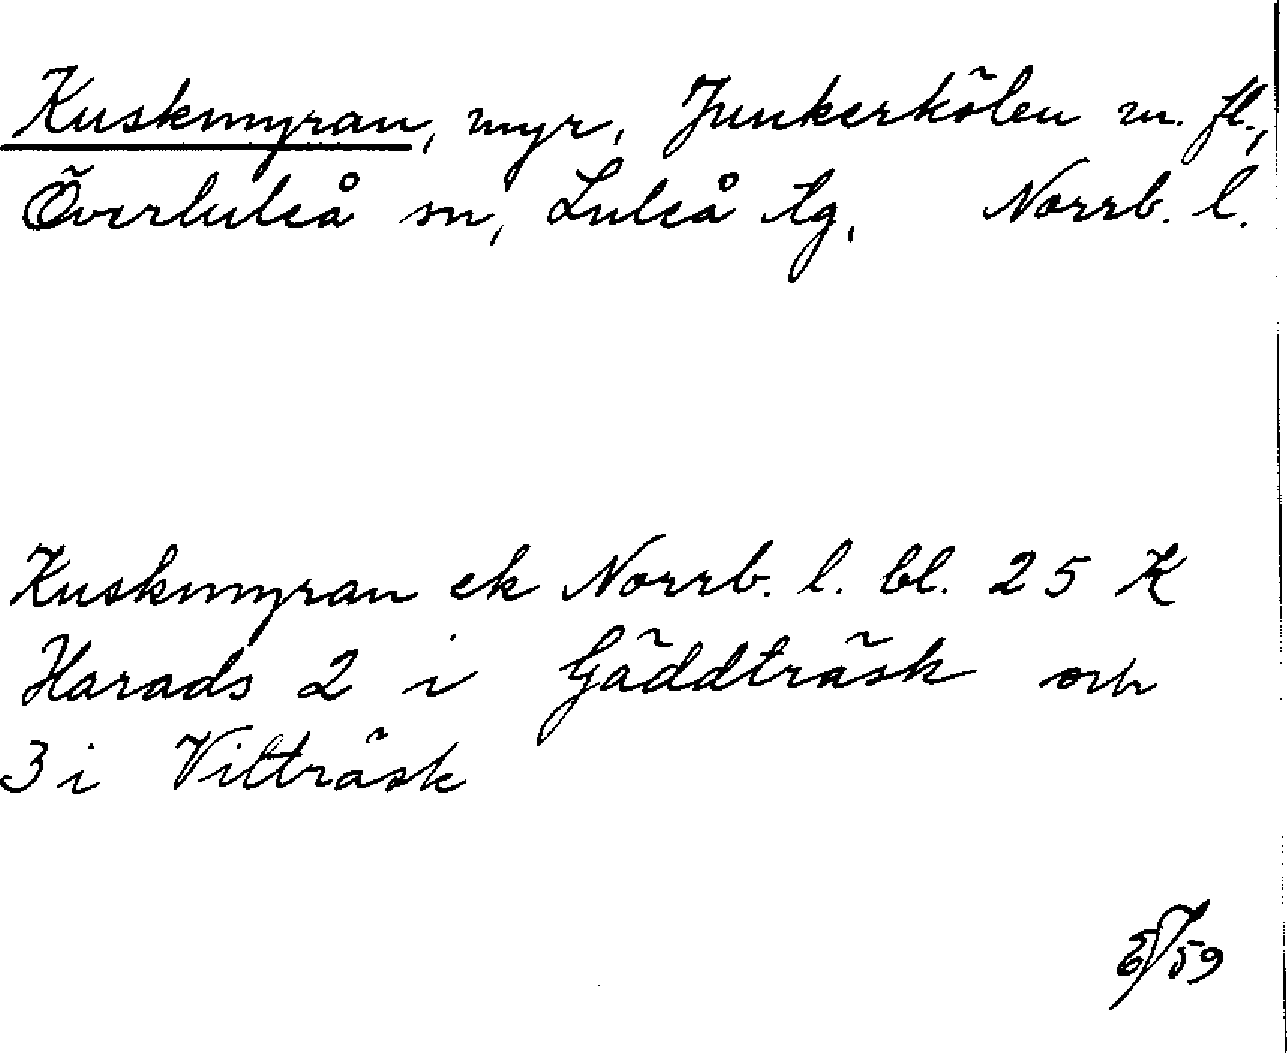 Kuskmyran, myr, Junkerkölen m. fl.,
Överluleå sn, Luleå tg, Norrb. l.
Kuskmyran ek Norrb. l. bl. 25 K
Harads 2 i Gäddträsk och
3 i Vitträsk